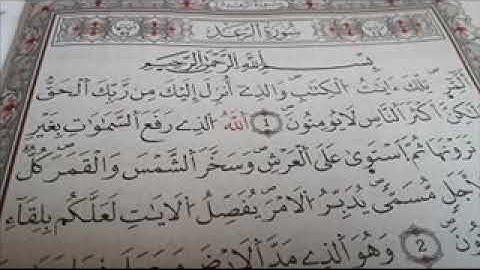 سُورَةُ الرَّعْدِ
بِسْمِ اللَّهِ الرَّحْمَٰنِ الرَّحِيمِ
أَلَٓمِّٓرۖ تِلْكَ ءَايَٰتُ الْكِتَٰبِۖ وَالذِےٓ أُنزِلَ إِلَيْكَ مِن رَّبِّكَ الْحَقُّ
وَلَٰكِنَّ أَكْثَرَ النَّاسِ لَا يُومِنُونَۖ 1 اللَّهُ الذِے رَفَعَ السَّمَٰوَٰتِ بِغَيْرِ
تَرَوْنَهَا ثُمَّ اسْتَوَىٰ عَلَى الْعَرْشِۖ وَسَخَّرَ الشَّمْسَ وَالْقَمَرَۖ كُلٌّ
لِأَجَلٍ مُّسَمّىۖ يُدَبِّرُ الْأَمْرَۖ يُفَصِّلُ الْأَيَٰتِ لَعَلَّكُم بِلِقَآءِ
2 وَهُوَ الذِے مَدَّ الْأَرْضَ وَجَعَلَ فِيهَا